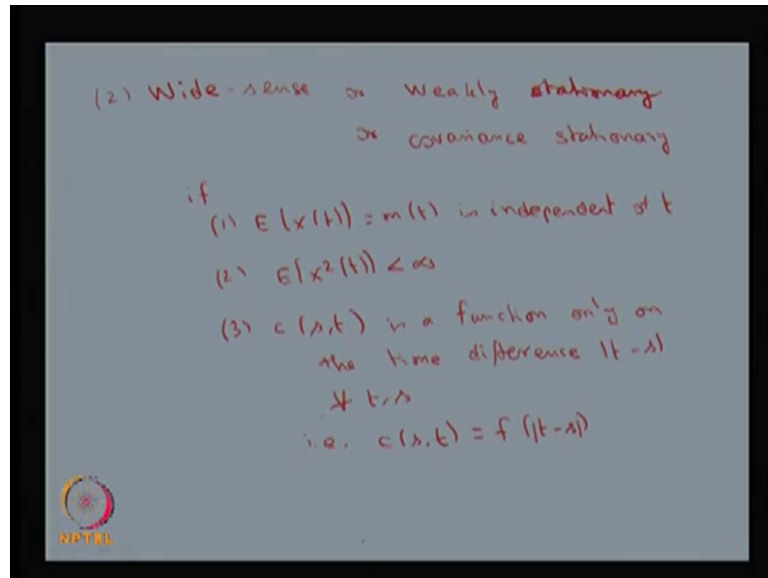 (2) Wide-sense or weakly stationary
or covariance stationary
if
(1) E(x(t)) = m(t) is independent of t
(2) E(x²(t)) < ∞
(3) c(s,t) is a function only on
the time difference |t-s|
∀ t,s
i.e. c(s,t) = f(|t-s|)
NPTEL